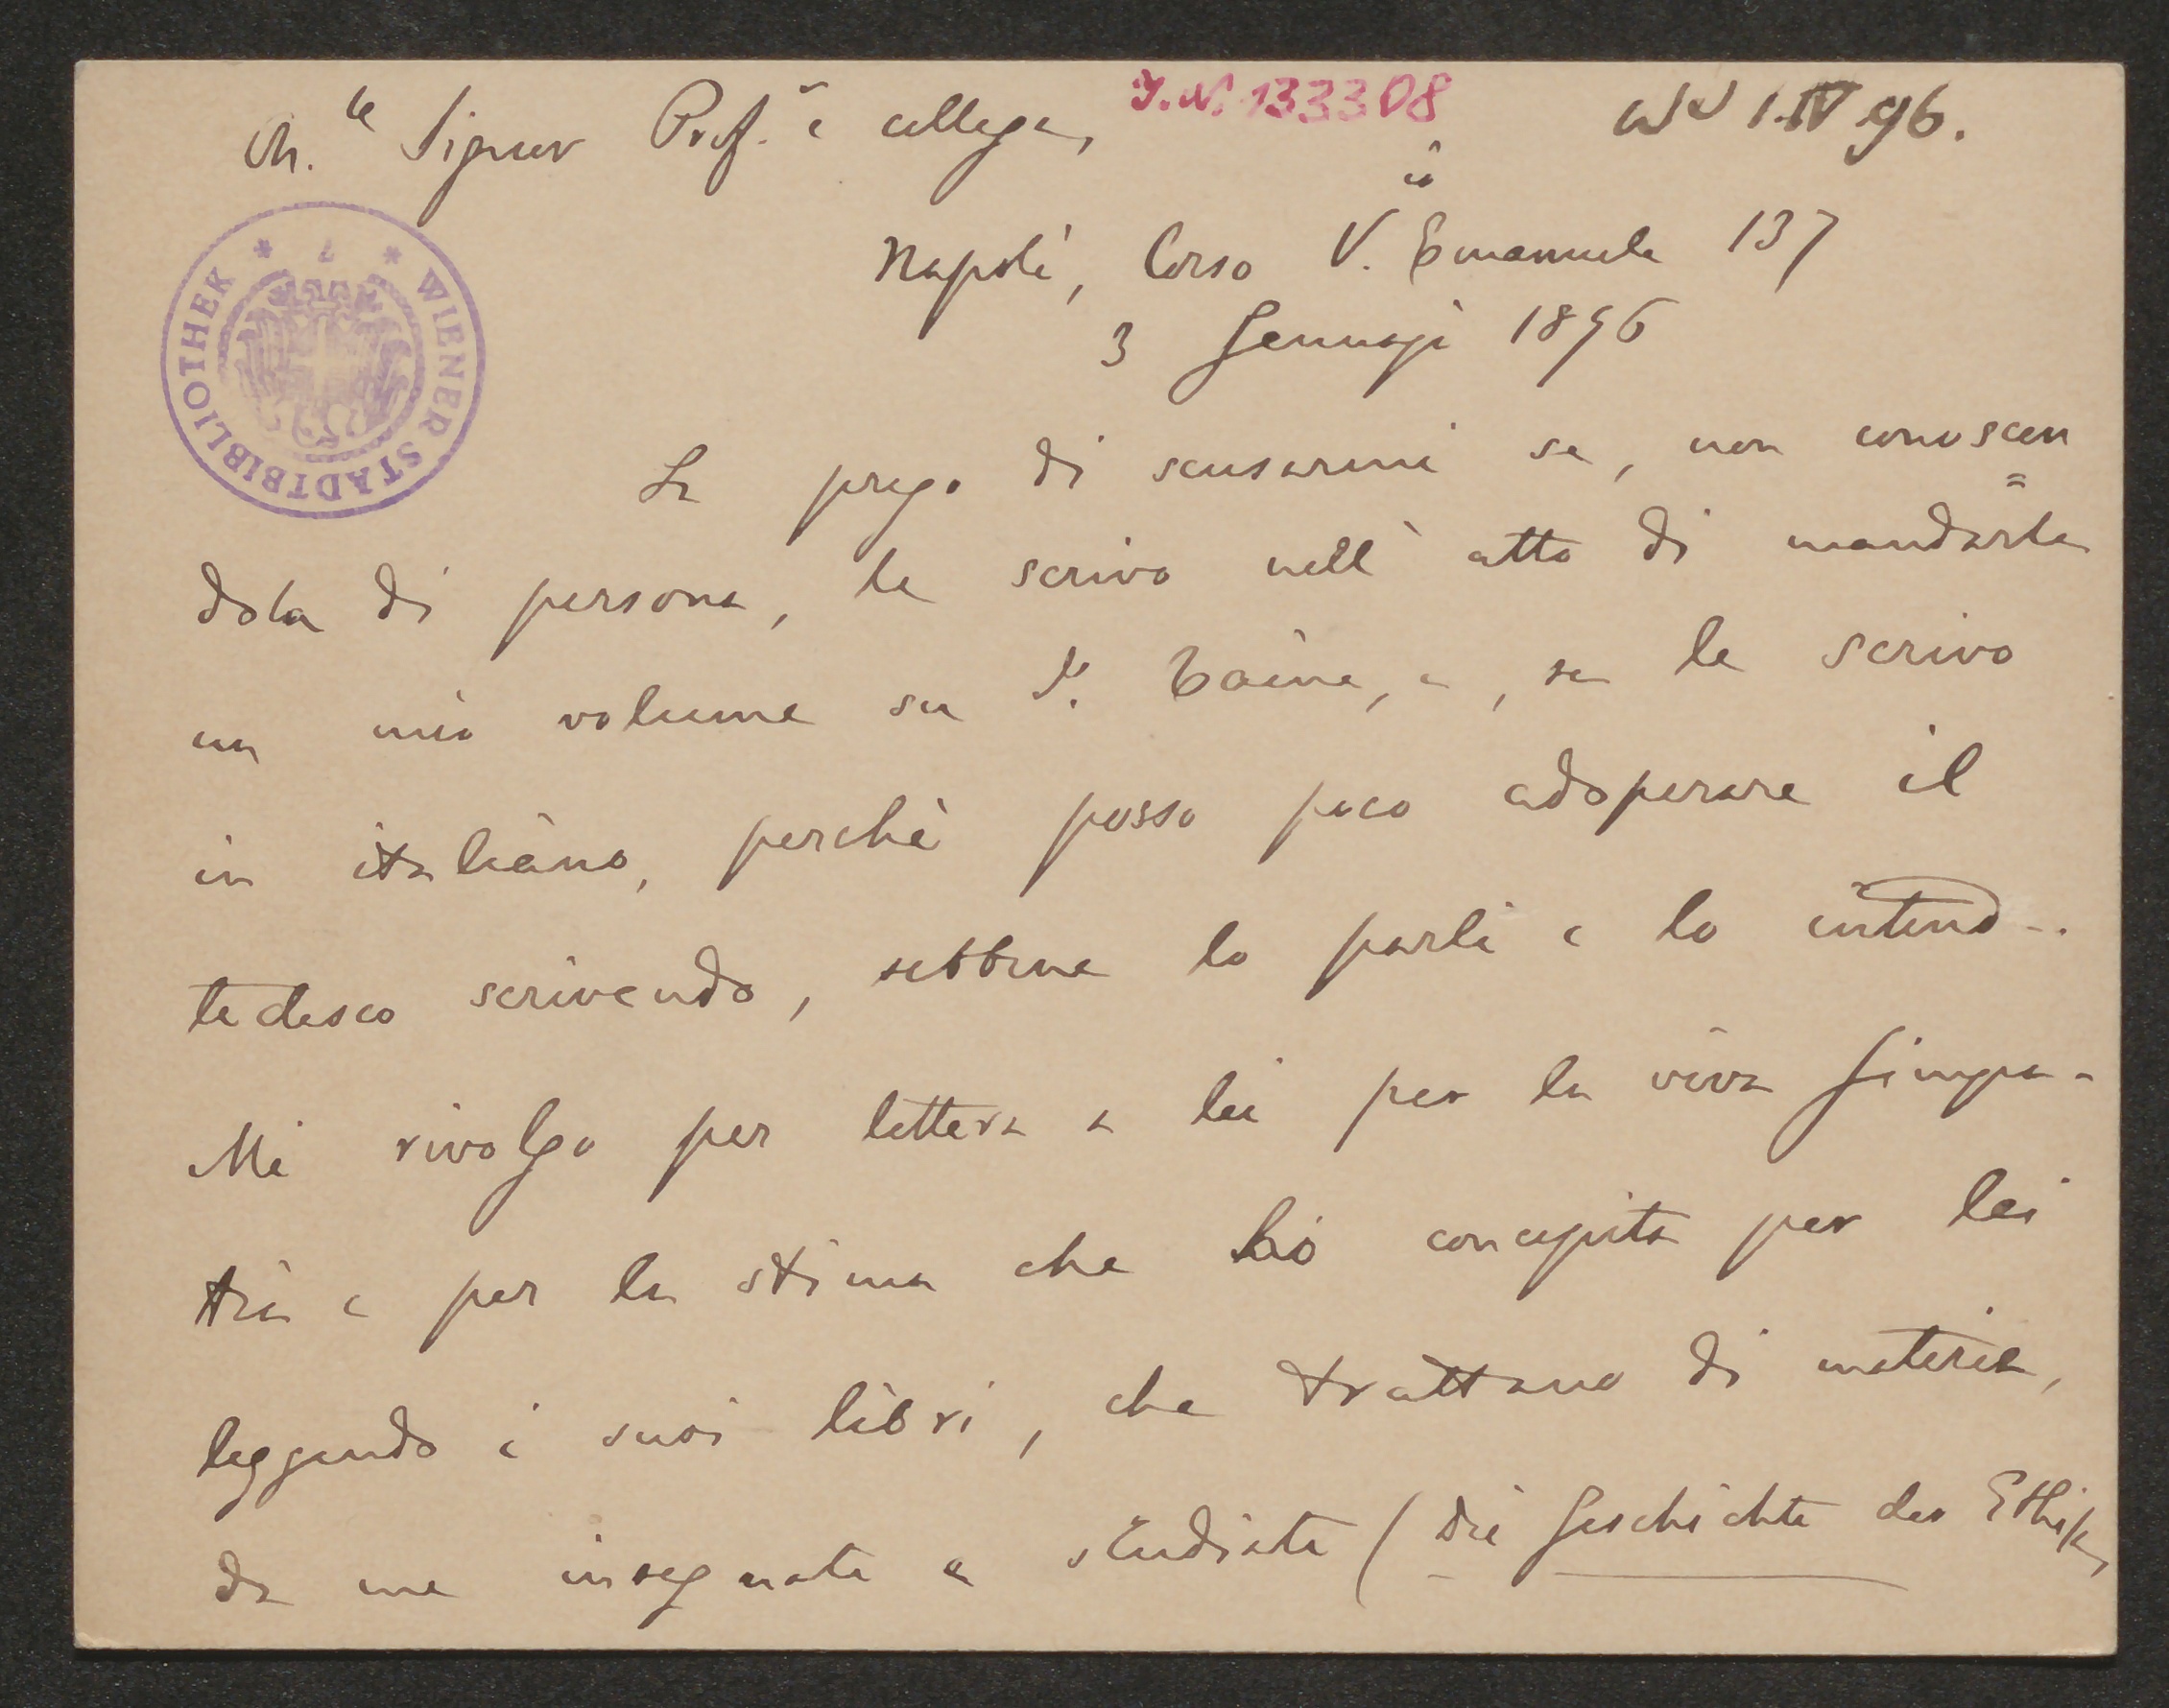 Ch. le Signor Prof. e collega,
J.N. 133308
I. IV 96.
io
Napoli, Corso V. Emanuele 137
3 Gennajo 1896
WIENER STADTBIBLIOTHEK
La prego di scusarmi se, non conoscen=
dola di persona, le scrivo nell'atto di mandarle
un mio volume su I. Taine, e, se le scrivo
in italiano, perchè posso poco adoperare il
tedesco scrivendo, sebbene lo parli e lo intend..
Mi rivolgo per lettera a lei per la viva simpa-
tia e per la stima che ho concepita per lei
leggendo i suoi libri, che trattano di materia,
da me insegnata e studiata (die Geschichte der Ethik,